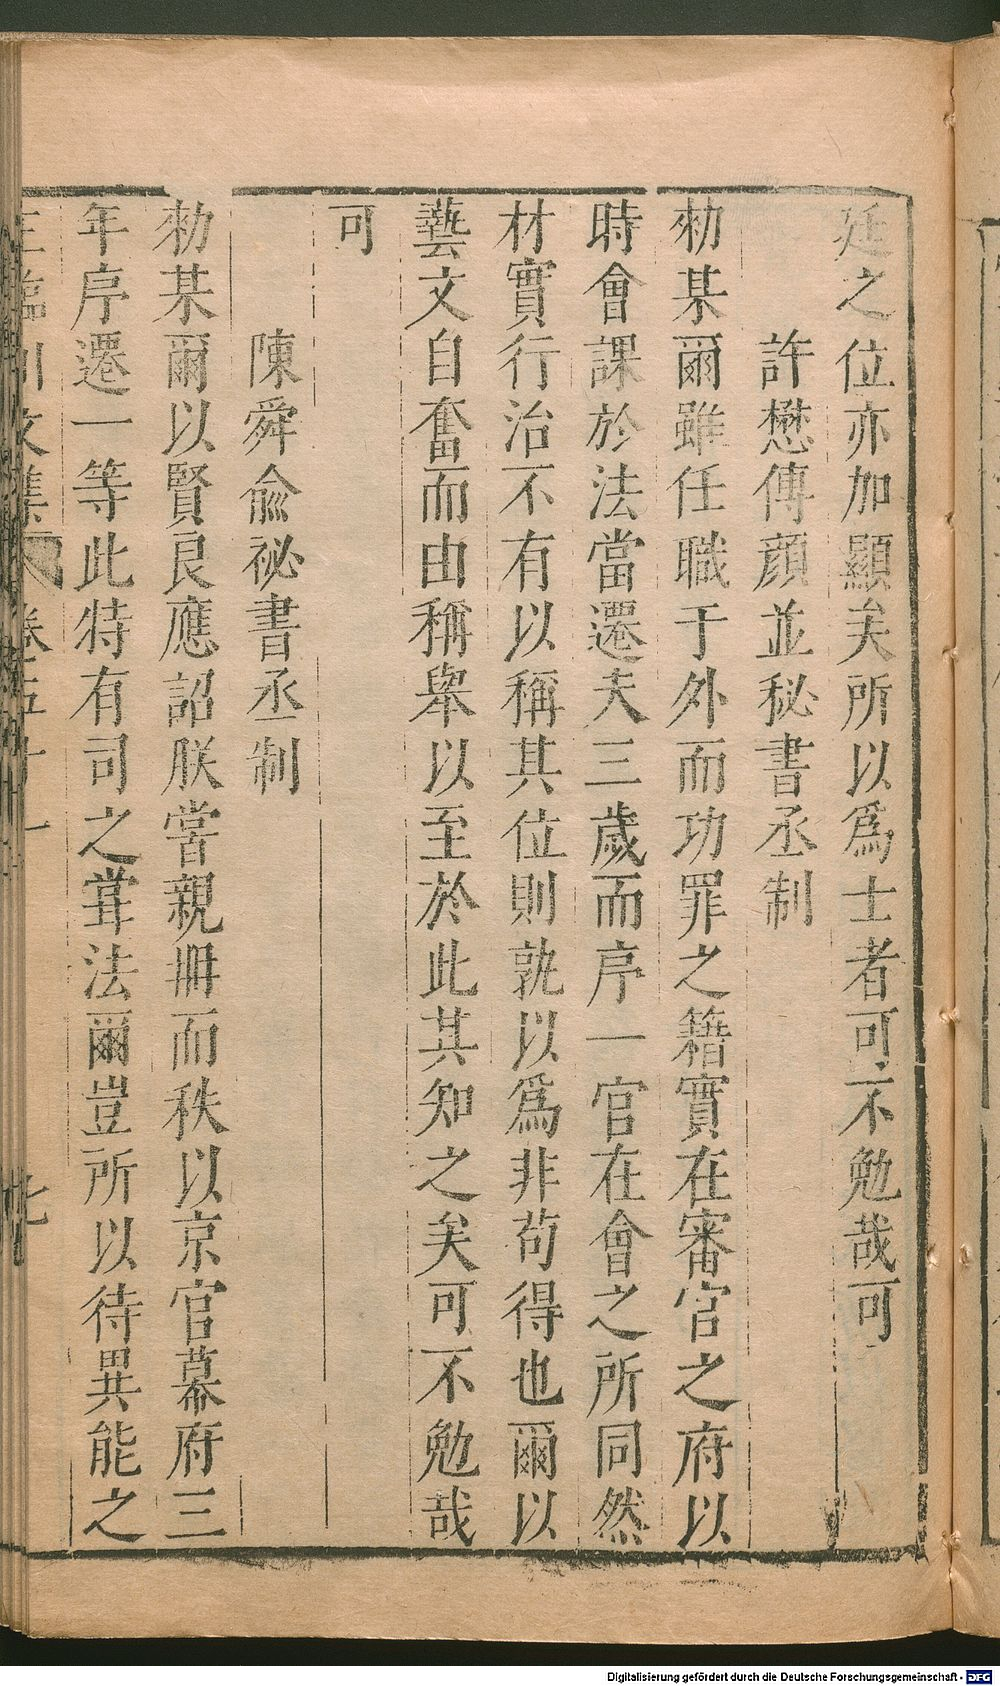 廷之位亦加顯矣所以爲士者可不勉哉可
許懋傳顔並秘書丞制
勑某爾雖任職于外而功罪之籍實在審官之府以
時會課於法當遷夫三歲而序一官在會之所同然
材實行治不有以稱其位則孰以爲非苟得也爾以
藝文自奮而由稱舉以至於此其知之矣可不勉哉
可
陳舜俞祕書丞制
勑某爾以賢良應詔朕嘗親冊而秩以京官幕府三
年序遷一等此特有司之常法爾豈所以待異能之
王臨川文集 卷五十一 七
Digitalisierung gefördert durch die Deutsche Forschungsgemeinschaft - DFG